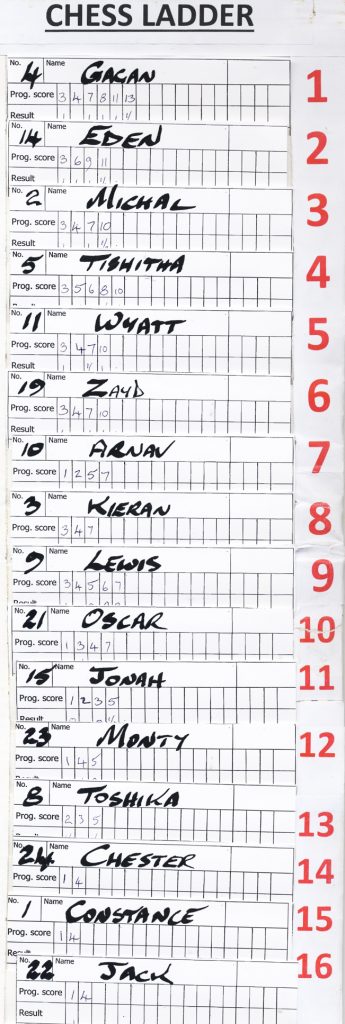 CHESS LADDER
No. 4 Name GAGAN 1
Prog. score 3 4 7 8 11 13
Result
No. 14 Name EDEN 2
Prog. score 3 6 9 11
Result
No. 2 Name MICHAL 3
Prog. score 3 4 7 10
Result
No. 5 Name TISHITHA 4
Prog. score 3 5 6 8 10
No. 11 Name WYATT 5
Prog. score 3 4 7 10
Result
No. 19 Name ZAYD 6
Prog. score 3 4 7 10
Result
No. 10 Name ARNAV 7
Prog. score 1 2 5 7
No. 3 Name KIERAN 8
Prog. score 3 4 7
No. 9 Name LEWIS 9
Prog. score 3 4 5 6 7
No. 21 Name OSCAR 10
Prog. score 1 3 4 7
No. 15 Name JONAH 11
Prog. score 1 2 3 5
Result
No. 23 Name MONTY 12
Prog. score 1 4 5
No. 8 Name TOSHIKA 13
Prog. score 2 3 5
No. 24 Name CHESTER 14
Prog. score 1 4
No. 1 Name CONSTANCE 15
Prog. score 1 4
No. 22 Name JACK 16
Prog. score 1 4